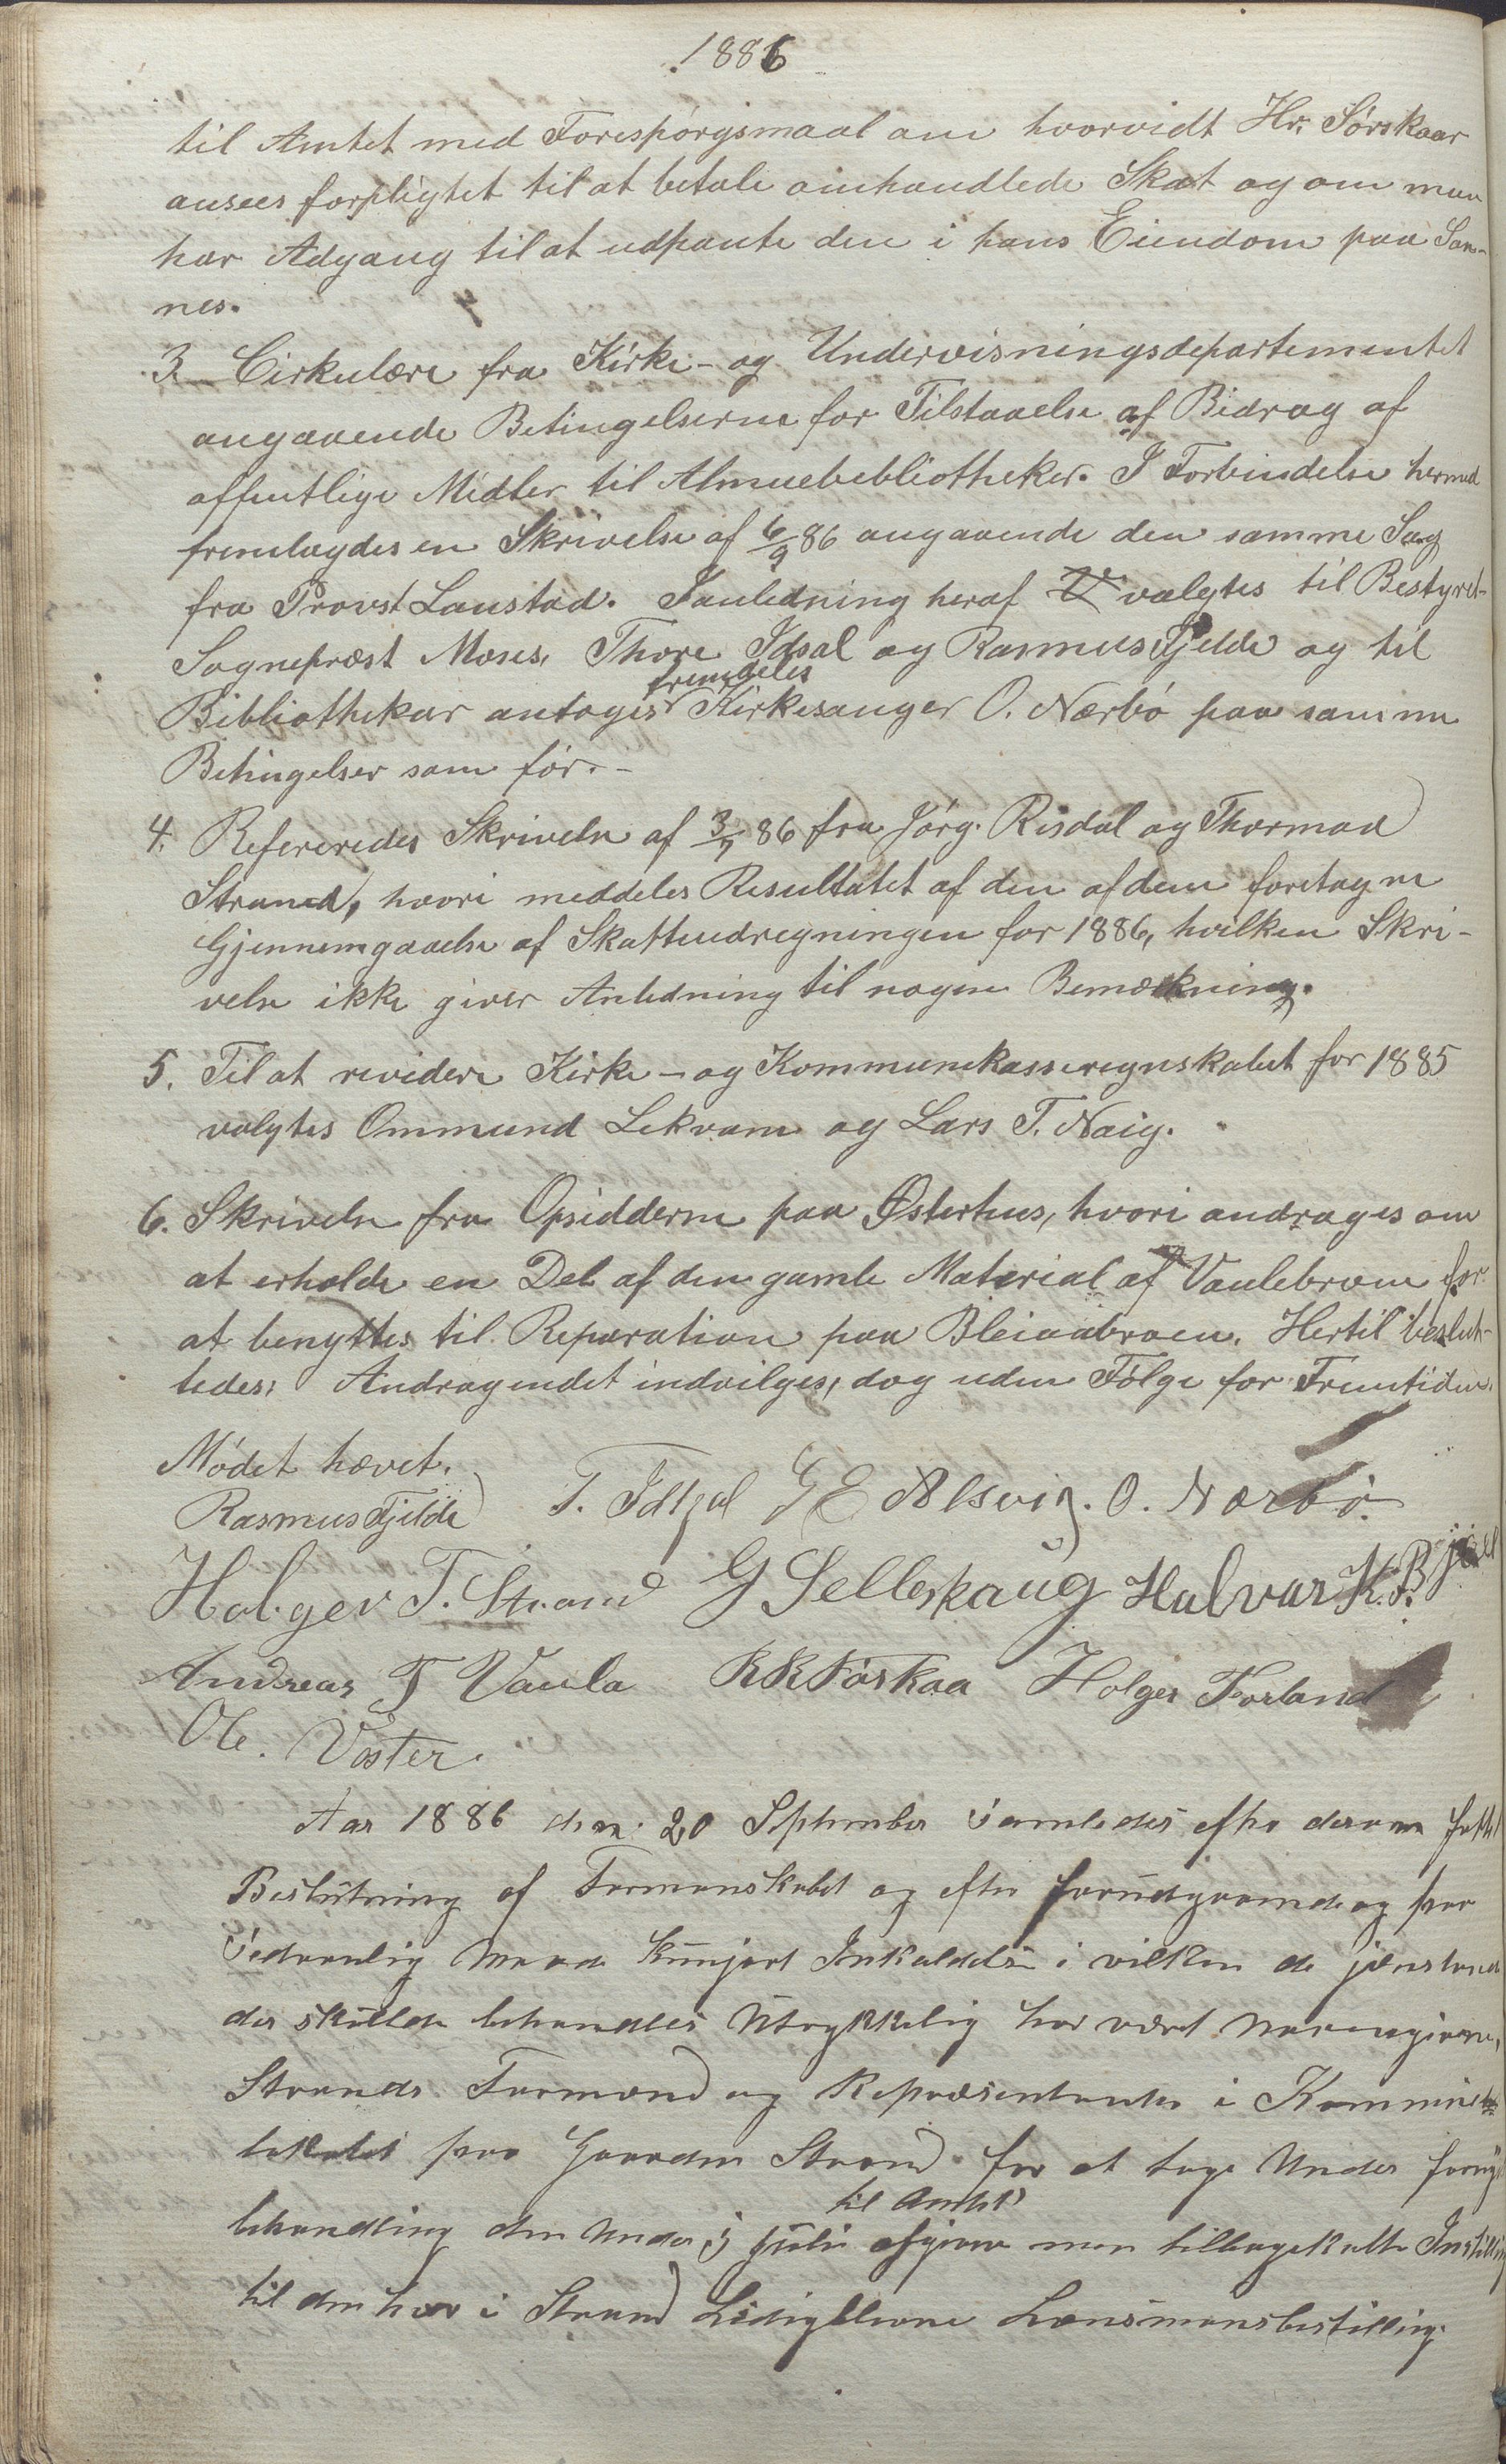 1886
til Amtet med Forespørgsmaal om hvorvidt Hr. Sørskaar
ansees forpligtet til at betale omhandlede Skat og om man
har Adgang til at udpante den i hans Eiendom paa San-
nes.
3. Cirkulære fra Kirke- og Undervisningsdepartementet
angaaende Betingelserne for Tilstaaelse af Bidrag af
offentlige Midler til Almuebibliotheker. I Forbindelse hermed
fremlagdes en Skrivelse af 6/9 86 angaaende den samme Sag
fra Provst Lanstad. I anledning heraf valgtes til Bestyrel-
Sognepræst Moses, Thore Idsal og Rasmus Fjelde og til
Bibliothekar antoges fremdeles Kirkesanger O. Nærbø paa samme
Betingelser som før.-
4. Refereredes Skrivelse af 3/7 86 fra Jørg. Risdal og Thormod
Strand, hvori meddeles Resultatet af den af dem foretagne
Gjennemgaaelse af Skatteudregningen for 1886, hvilken Skri-
velse ikke giver Anledning til nogen Bemærkning.
5. Til at revidere Kirke- og Kommunekasseregnskabet for 1885
valgtes Ommund Lekvam og Lars T. Naig.
6. Skrivelse fra Opsidderne paa Østerhus, hvori andrages om
at erholde en Del af den gamle Material af Vaulebroen for
at benyttes til Reparation paa Bleiaabroen. Hertil beslut-
tedes: Andragendet indvilges, dog uden Følge for Fremtiden.
Mødet hævet.
Rasmus Fjelde T. Idsal G E Alsvig. O. Nærbø.
Holger T. Strand G Selleskaug Halvar K. B
Andreas T Vaula R R Fosskaa Holger Forland
Ole. Voster.
Aar 1886 den 20 September samledes efter derom fattet
Beslutning af Formanskabet og efter forudgaaende og paa
sedvanlig Maade kunjort Inkaldelse i vilken de jenstand
der skulde behandles Utrykkelig har været navngivne,
Strands Formænd og Repræsentanter i Kommune
lokalet paa Gaarden Strand for at tage Under fornyet
behandling den Under 5 Juli til Amtet afgivne men tilbagekalte Instilling
til den her i Strand Ledigblevne Lensmansbestilling.